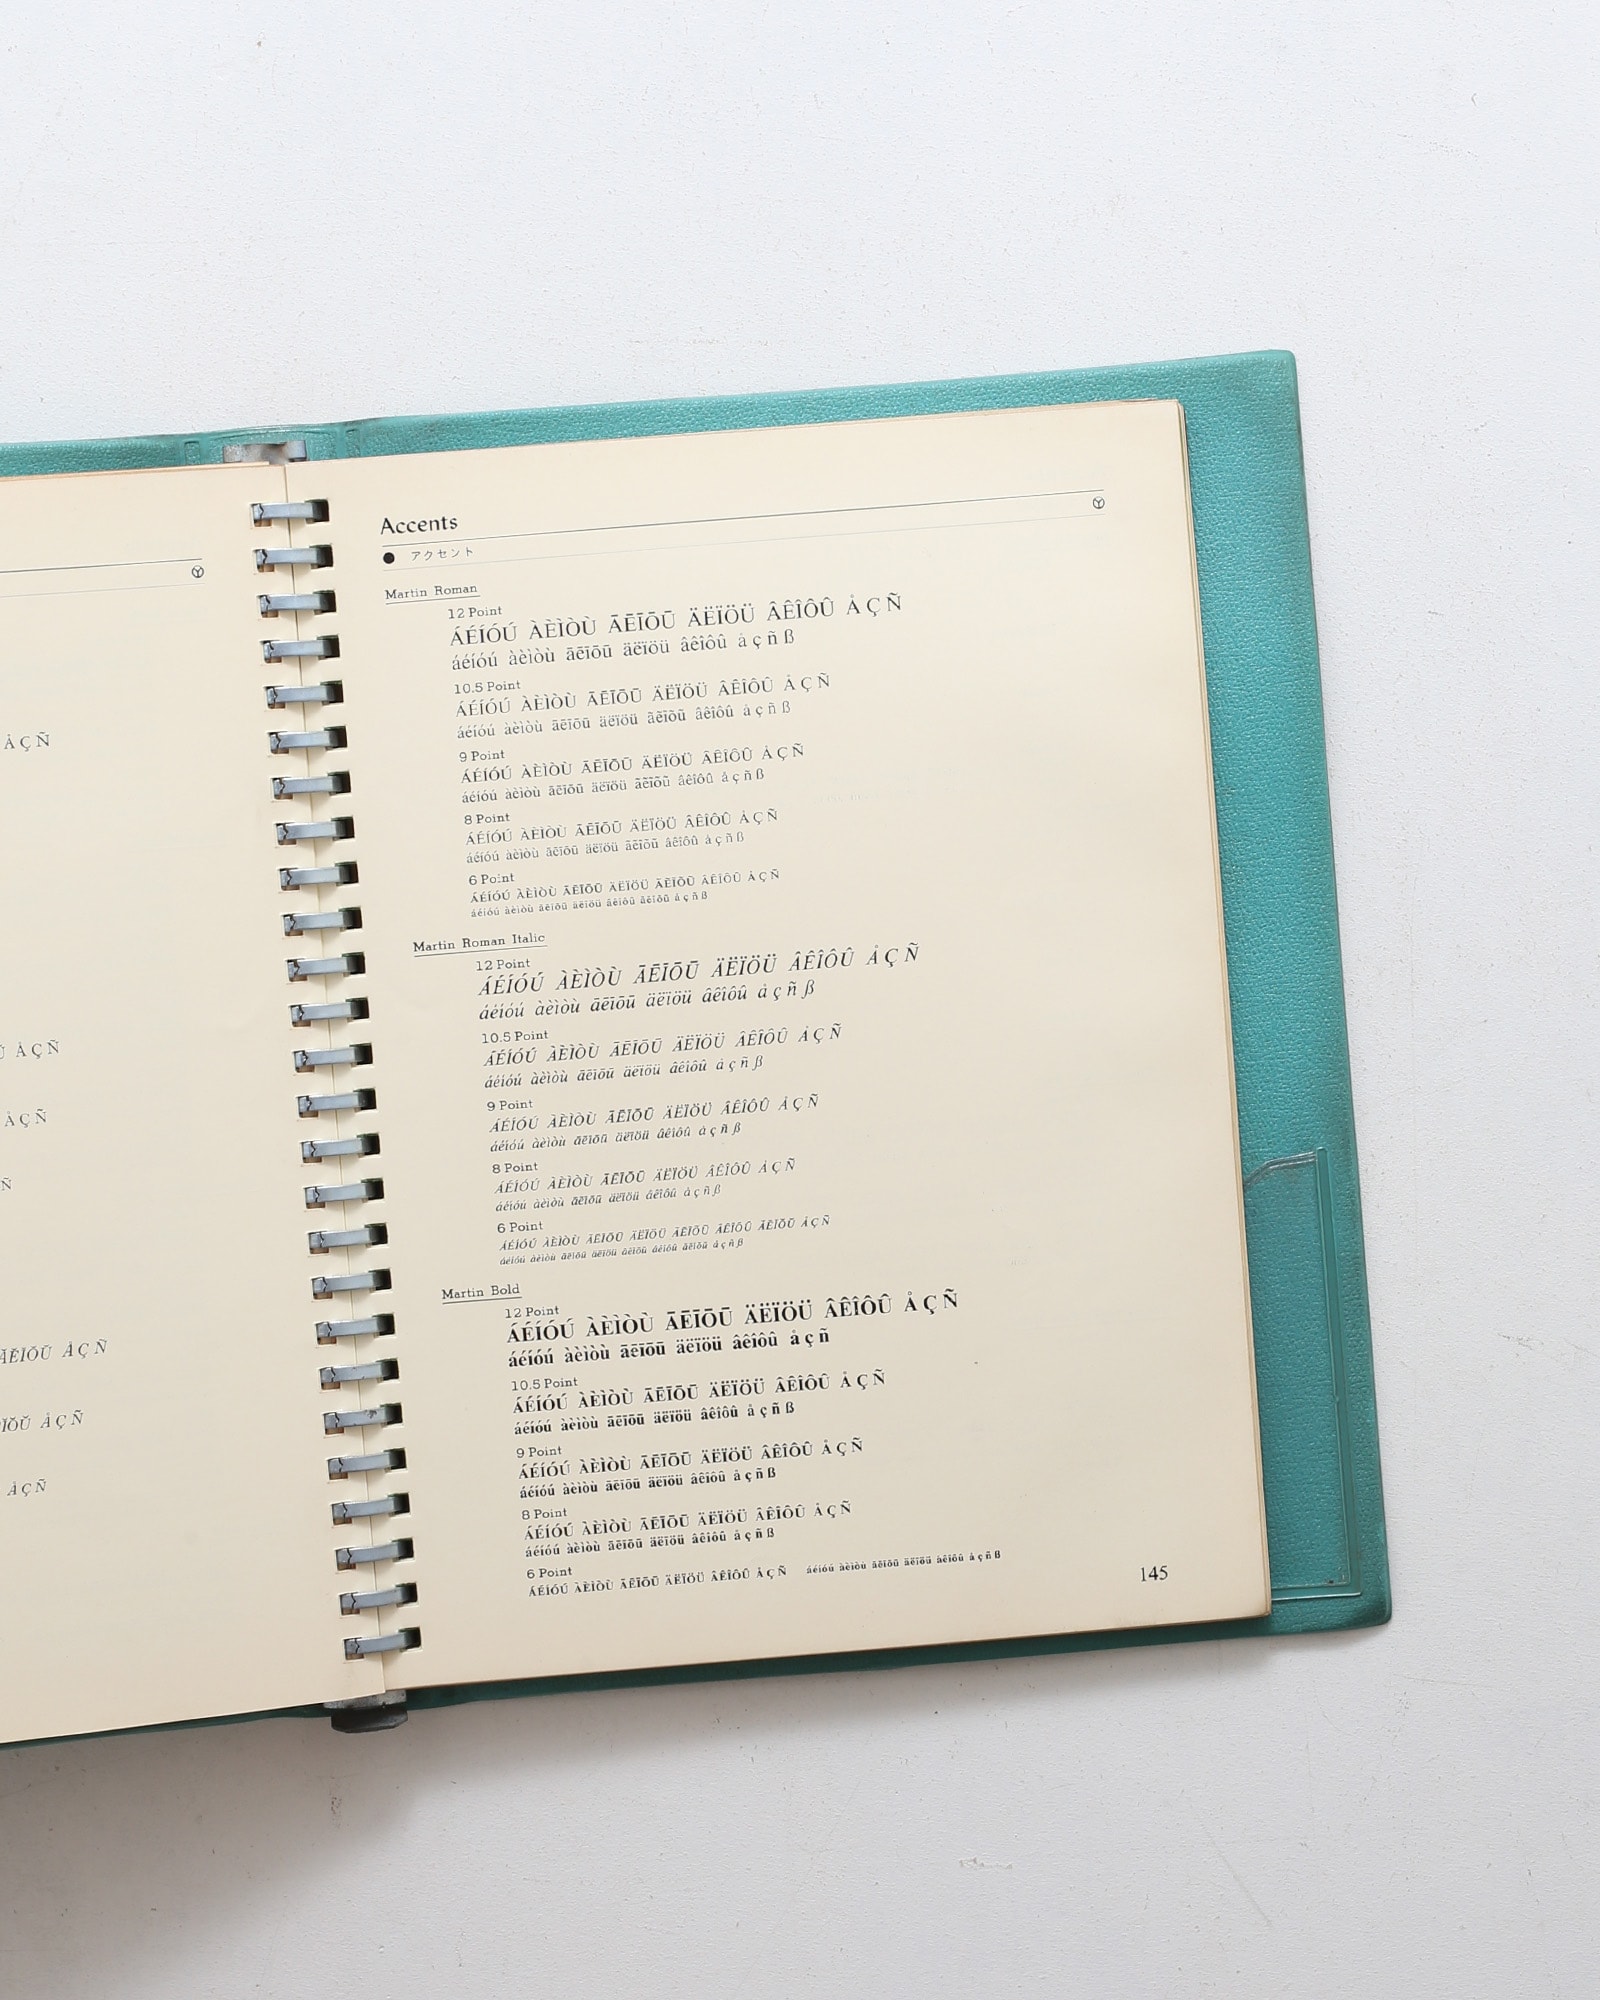 Å Ç Ñ
Å Ç Ñ
Å Ç Ñ
Ñ
Å Ç Ñ
Å Ç Ñ
Å Ç Ñ
Accents
● アクセント
Martin Roman
12 Point
ÁÉÍÓÚ ÀÈÌÒÙ ĀĒĪŌŪ ÄËÏÖÜ ÂÊÎÔÛ Å Ç Ñ
áéíóú àèìòù āēīōū äëïöü âêîôû å ç ñ ß
10.5 Point
ÁÉÍÓÚ ÀÈÌÒÙ ĀĒĪŌŪ ÄËÏÖÜ ÂÊÎÔÛ Å Ç Ñ
áéíóú àèìòù āēīōū äëïöü ãẽĩõũ âêîôû å ç ñ ß
9 Point
ÁÉÍÓÚ ÀÈÌÒÙ ĀĒĪŌŪ ÄËÏÖÜ ÂÊÎÔÛ Å Ç Ñ
áéíóú àèìòù āēīōū äëïöü ãẽĩõũ âêîôû å ç ñ ß
8 Point
ÁÉÍÓÚ ÀÈÌÒÙ ĀĒĪŌŪ ÄËÏÖÜ ÂÊÎÔÛ Å Ç Ñ
áéíóú àèìòù āēīōū äëïöü âêîôû å ç ñ ß
6 Point
ÁÉÍÓÚ ÀÈÌÒÙ ÄËÏÖÜ ÂÊÎÔÛ Å Ç Ñ
áéíóú àèìòù äëïöü âêîôû å ç ñ ß
Martin Roman Italic
12 Point
ÁÉÍÓÚ ÀÈÌÒÙ ĀĒĪŌŪ ÄËÏÖÜ ÂÊÎÔÛ Å Ç Ñ
áéíóú àèìòù āēīōū äëïöü âêîôû å ç ñ ß
10.5 Point
ÁÉÍÓÚ ÀÈÌÒÙ ĀĒĪŌŪ ÄËÏÖÜ ÂÊÎÔÛ Å Ç Ñ
áéíóú àèìòù āēīōū äëïöü âêîôû å ç ñ ß
9 Point
ÁÉÍÓÚ ÀÈÌÒÙ ĀĒĪŌŪ ÄËÏÖÜ ÂÊÎÔÛ Å Ç Ñ
áéíóú àèìòù āēīōū äëïöü âêîôû å ç ñ ß
8 Point
ÁÉÍÓÚ ÀÈÌÒÙ ĀĒĪŌŪ ÄËÏÖÜ ÂÊÎÔÛ Å Ç Ñ
áéíóú àèìòù āēīōū äëïöü âêîôû å ç ñ ß
6 Point
ÁÉÍÓÚ ÀÈÌÒÙ ÄËÏÖÜ ÂÊÎÔÛ Å Ç Ñ
áéíóú àèìòù äëïöü âêîôû å ç ñ ß
Martin Bold
12 Point
ÁÉÍÓÚ ÀÈÌÒÙ ĀĒĪŌŪ ÄËÏÖÜ ÂÊÎÔÛ Å Ç Ñ
áéíóú àèìòù āēīōū äëïöü âêîôû å ç ñ
10.5 Point
ÁÉÍÓÚ ÀÈÌÒÙ ĀĒĪŌŪ ÄËÏÖÜ ÂÊÎÔÛ Å Ç Ñ
áéíóú àèìòù āēīōū äëïöü âêîôû å ç ñ ß
9 Point
ÁÉÍÓÚ ÀÈÌÒÙ ĀĒĪŌŪ ÄËÏÖÜ ÂÊÎÔÛ Å Ç Ñ
áéíóú àèìòù āēīōū äëïöü âêîôû å ç ñ ß
8 Point
ÁÉÍÓÚ ÀÈÌÒÙ ĀĒĪŌŪ ÄËÏÖÜ ÂÊÎÔÛ Å Ç Ñ
áéíóú àèìòù āēīōū äëïöü âêîôû å ç ñ ß
6 Point
ÁÉÍÓÚ ÀÈÌÒÙ ĀĒĪŌŪ ÄËÏÖÜ ÂÊÎÔÛ Å Ç Ñ áéíóú àèìòù āēīōū äëïöü âêîôû å ç ñ ß
145